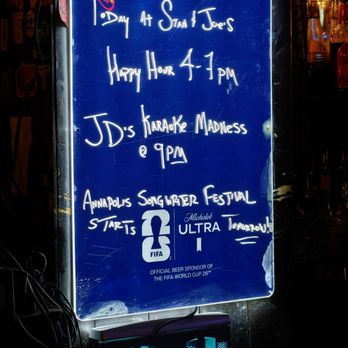 Day at Stan & Joe's
Happy Hour 4-7pm
JD's Karaoke Madness
@ 9pm
Annapolis Songwriter Festival
starts Tomorrow!
26
FIFA
Michelob
ULTRA
OFFICIAL BEER SPONSOR OF
THE FIFA WORLD CUP 26™